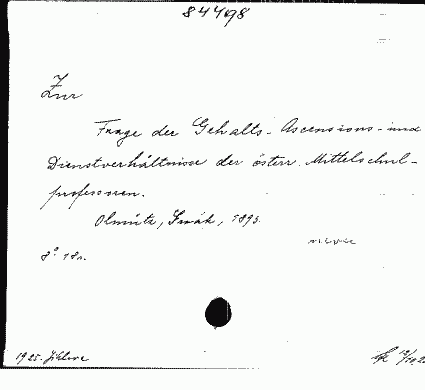 84498
Zur
Frage der Gehalts- Ascensions- und
Dienstverhältnisse der österr. Mittelschul-
professoren.
Olmütz, 1895.
8° 18
1925.